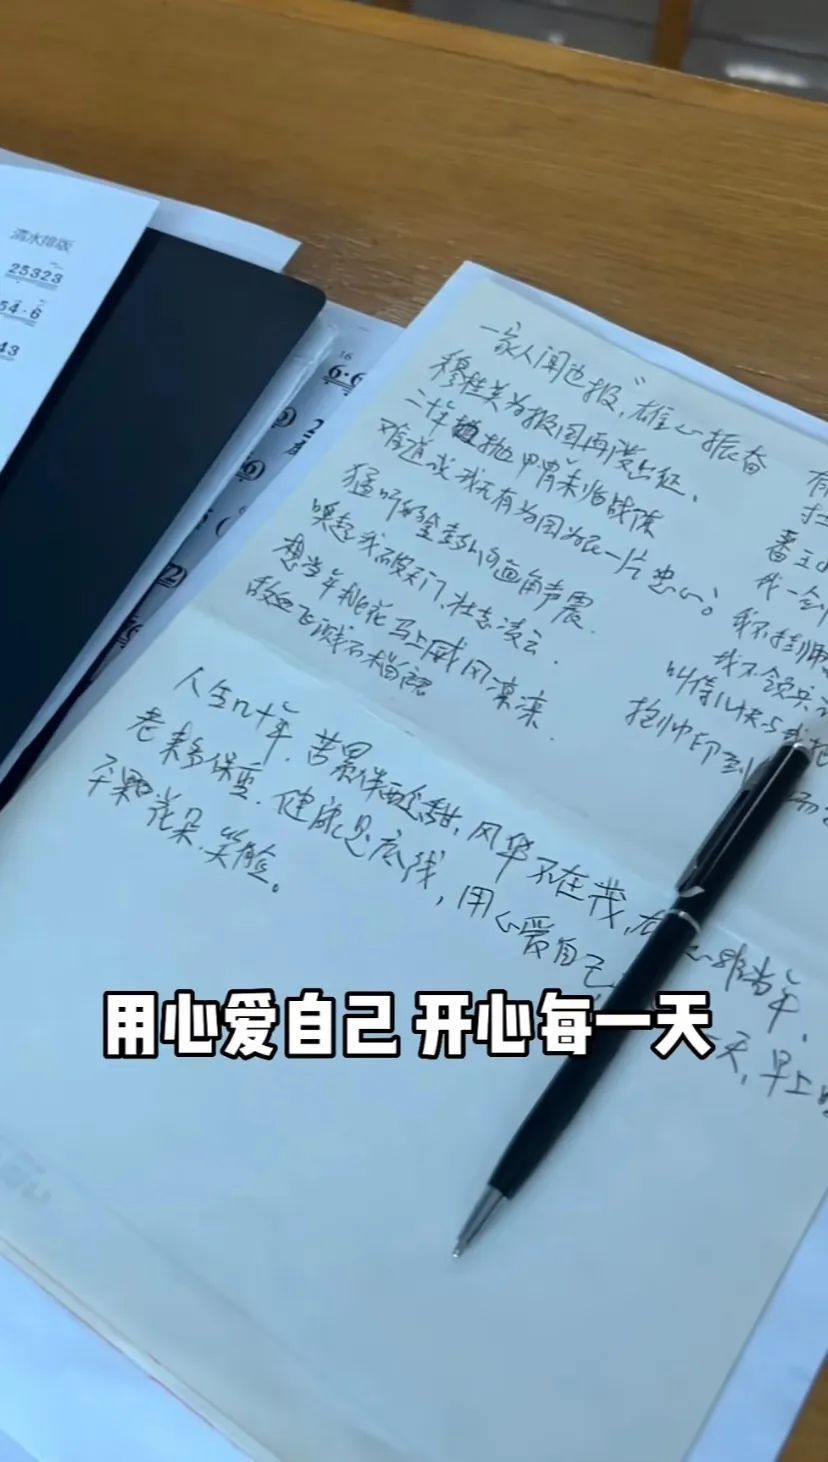 清水排版
25323
54·6
43
16
6·6
一家人闻边报,雄心振奋
穆桂英为报国再度出征、
二十年抛甲胄未临战阵
难道说我无有为国为民一片忠心。
猛听的金鼓响画角声震.
唤起我破天门,壮志凌云.
想当年桃花马上威风凛凛.
敌血飞溅石榴裙
番王小
我一剑
我不挂帅
我不领兵
叫侍儿快与我
抱帅印到
人生几十年.苦累伴酸甜,风华不在茂,
心非当年,
老来多保重.健康是底线,用心爱自己
天,早上
笑脸。
用心爱自己 开心每一天